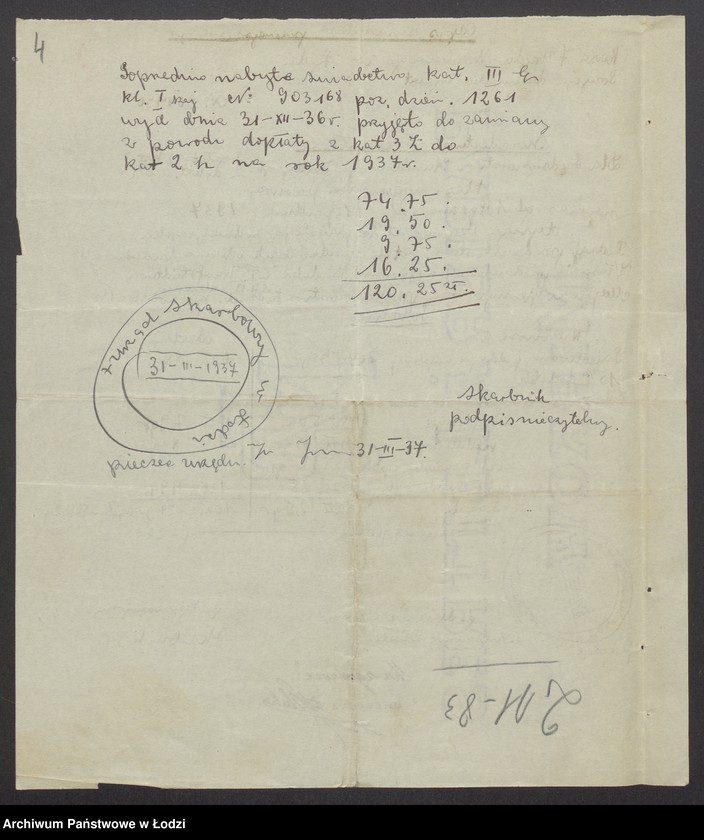 4
Poprzednio nabyte świadectwo kat. III
kl. I szej № 903168 poz. dzien. 1261
wyd dnia 31-XII-36r. przyjęto do zamiany
z powodu dopłaty z kat 3 h do
kat 2 h na rok 1937r.
74.75.
19.50.
9.75.
16.25.
120.25 zł.
Urząd Skarbowy w Łodzi
31-III-1937
pieczęć urzędu. 31-III-37.
Skarbnik
podpis nieczytelny.
Archiwum Państwowe w Łodzi